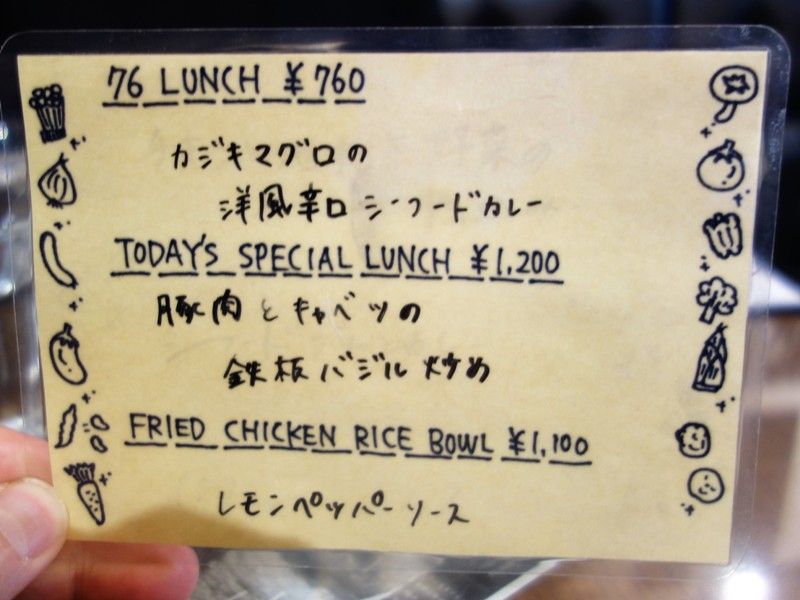 76 LUNCH ¥760
カジキマグロの
洋風辛口シーフードカレー
TODAY'S SPECIAL LUNCH ¥1,200
豚肉とキャベツの
鉄板バジル炒め
FRIED CHICKEN RICE BOWL ¥1,100
レモンペッパーソース